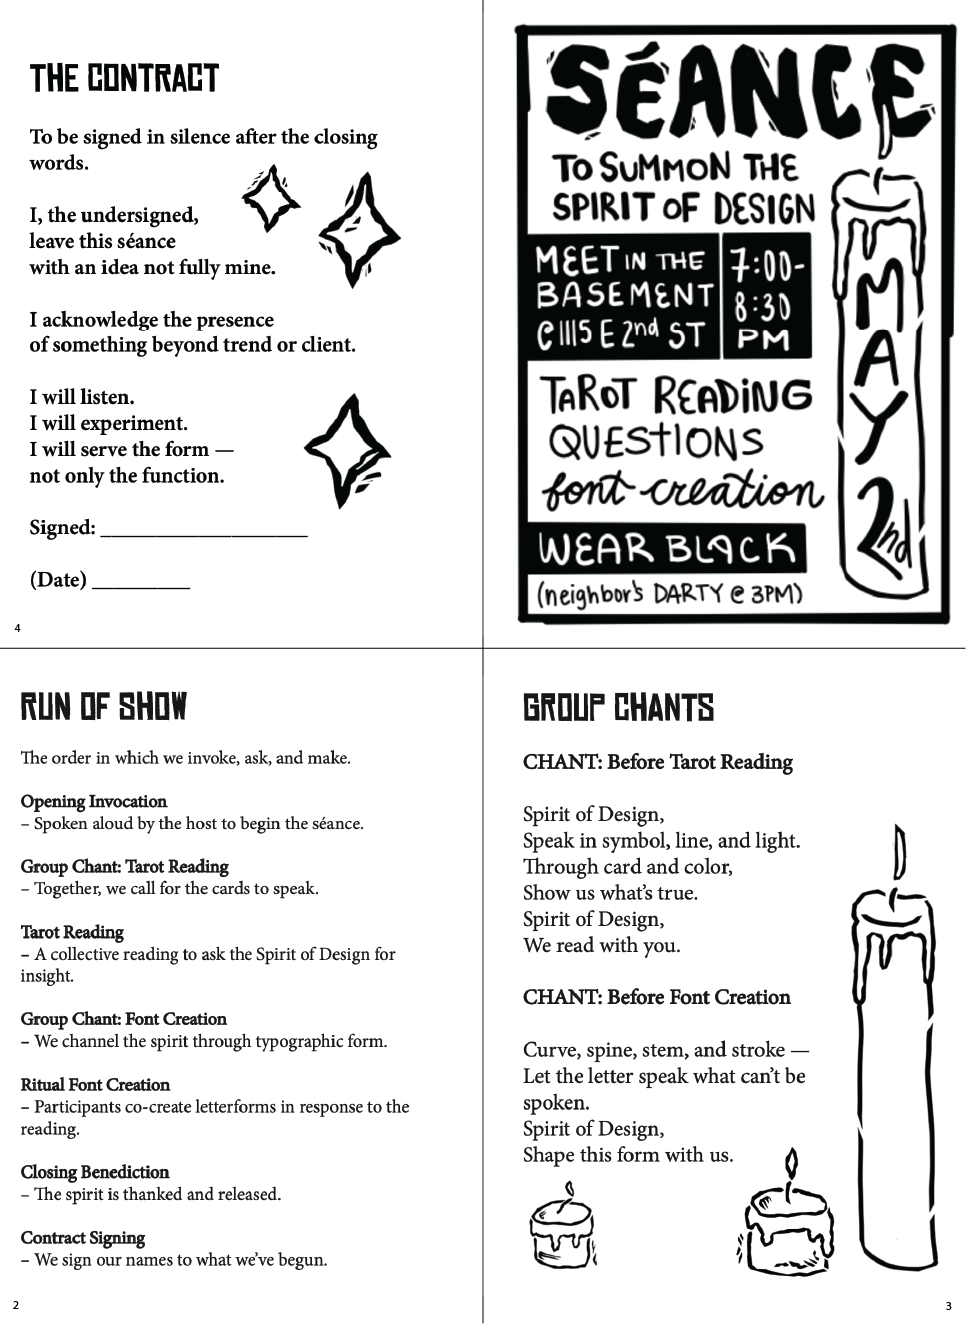 THE CONTRACT
To be signed in silence after the closing
words.
I, the undersigned,
leave this séance
with an idea not fully mine.
I acknowledge the presence
of something beyond trend or client.
I will listen.
I will experiment.
I will serve the form —
not only the function.
Signed: ___________________
(Date) _________
4
SÉANCE
TO SUMMON THE
SPIRIT OF DESIGN
MEET IN THE
BASEMENT
@ 1115 E 2nd ST
7:00-
8:30
PM
TAROT READING
QUESTIONS
font creation
WEAR BLACK
(neighbor's DARTY @ 3PM)
MAY
2nd
RUN OF SHOW
The order in which we invoke, ask, and make.
Opening Invocation
– Spoken aloud by the host to begin the séance.
Group Chant: Tarot Reading
– Together, we call for the cards to speak.
Tarot Reading
– A collective reading to ask the Spirit of Design for
insight.
Group Chant: Font Creation
– We channel the spirit through typographic form.
Ritual Font Creation
– Participants co-create letterforms in response to the
reading.
Closing Benediction
– The spirit is thanked and released.
Contract Signing
– We sign our names to what we've begun.
2
GROUP CHANTS
CHANT: Before Tarot Reading
Spirit of Design,
Speak in symbol, line, and light.
Through card and color,
Show us what's true.
Spirit of Design,
We read with you.
CHANT: Before Font Creation
Curve, spine, stem, and stroke —
Let the letter speak what can't be
spoken.
Spirit of Design,
Shape this form with us.
3